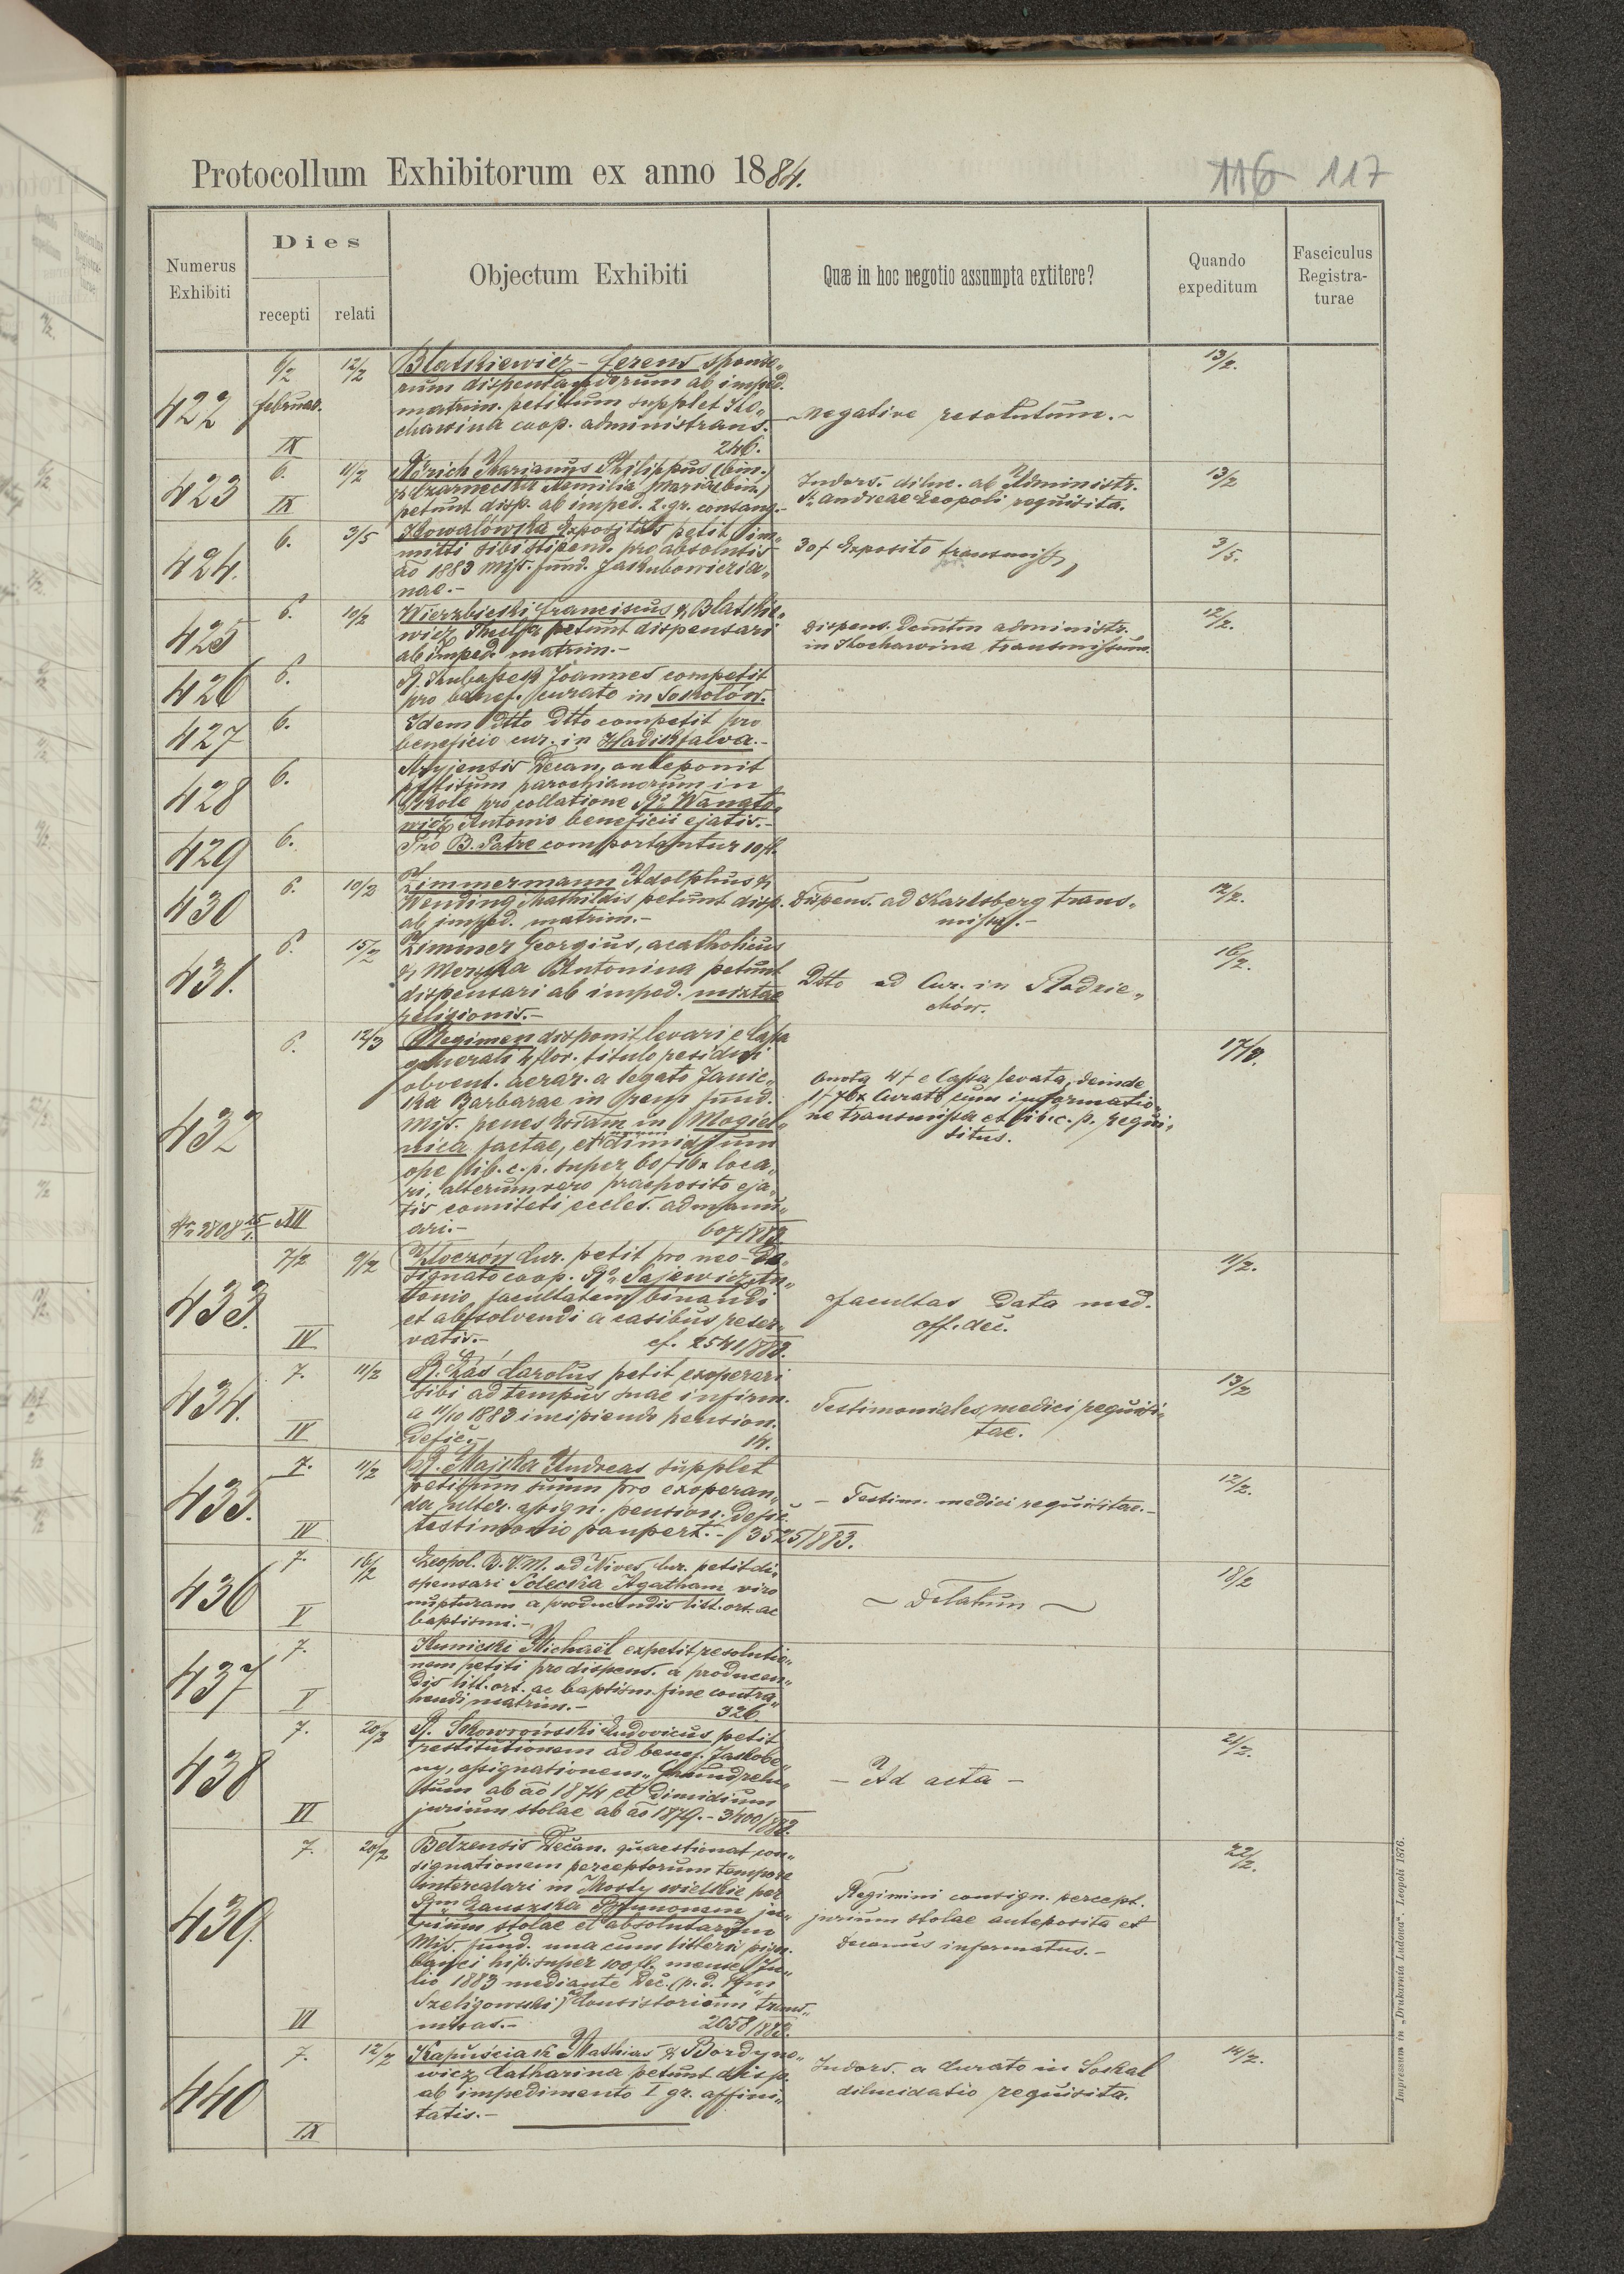 Protocollum Exhibitorum ex anno 1884.
116 117
Numerus Exhibiti
Dies
recepti relati
Objectum Exhibiti
Quæ in hoc negotio assumpta extitere?
Quando expeditum
Fasciculus Registra-
turae
422
6/2 Februar.
IX
12/2
Blatkiewicz - Ferens sponso„
rum dispensandorum ab imped.
matrim. petitum supplet Ko„
chawina coop. administrans.
246.
~ negative resolutum. ~
13/2.
423
6.
IX
11/2
Mürich Marianus Philippus (bin.)
& Czarnecka Aemilia Maria (bin.)
petunt disp. ab imped. 2. gr. consang.-
Indors. diluc. ab Administr.
St. Andreae Leopoli requisita.
13/2
424.
6.
3/5
Kowalówka Expositus petit im„
mitti sibi stipend. pro absolutis
ao 1883 Miss. fund. Jakubowicia„
nae.-
30 f Exposito transmissi
3/5.
425
6.
10/2
Wierzbicki Franciscus & Blatkie„
wicz Thecla petunt dispensari
ab imped. matrim.-
Dispens. Demtm administr.
in Kochawina transmissum.
12/2.
426
6.
R. Joannes competit
pro benef. curato in Sokolów.
427
6.
Idem dtto dtto competit pro
beneficio cur. in Hadikfalva.-
428
6.
Stryjensis Decan. anteponit
petitum parochianorum in
Skole pro collatione Ro Wanato„
wicz Antonio beneficii ejatis.-
429
6.
Pro B. Patre comportantur 10 fl.
430
6.
10/2
Zimmermann Adolphus &
Wending Mathildis petunt disp.
ab imped. matrim.-
Dispens. ad Karlsberg trans„
missa.-
12/2.
431.
6.
15/2
Zimmer Georgius, acatholicus
& Merska Antonina petunt
dispensari ab imped. mixtae
religionis.-
Dtto ad Cur. in Radzie„
chów.
16/2.
432
6.
12/3
Regimen disponit levari e Cassa
generali 4 flor. titulo residui
obvent. aerar. a legato Janic„
ka Barbarae in rem fund.
Miss. penes Eccldam in Magiel„
nica factae, et dimidium
ope lib. c. p. super 60 f 16x loca„
ri, alterum vero praeposito eja„
tis comiteti eccles. admanu„
ari.-
607/1883
No 2808 25/1. XII
Quota 4 f e Cassa levata, deinde
1 f 76x Curato cum informatio„
ne transmissa et lib. c. p. requi„
situs.
17/3.
433.
7/2
IV
9/2
Tłoczów Cur. petit pro neo-de„
signato coop. Ro Sajewicz An„
tonio facultatem binandi
et absolvendi a casibus reser„
vatis.-
cf. 2541/883.
Facultas Data med.
off. dec.
11/2.
434.
7.
IV
11/2
R. Łás Carolus petit exoperari
sibi ad tempus suae infirm.
a 11/10 1883 incipiendo pension.
Defic.-
14.
Testimoniales medici requisi„
tae.
13/2
435.
7.
IV
11/2
R. Majka Andreas supplet
petitum suum pro exoperan„
da ulter. assign. pension. Defic.
testimonio paupert.- 3525/883.
- Testim. medici requisitae.-
12/2.
436
7.
V
16/2
Leopol. B.V.M. ad Nives Cur. petit di„
spensari Solecka Agatham viro
nupturam a producendis litt. ort. ac
baptismi.-
~ Delatum ~
18/2
437
7.
V
Kunicki Michaël expetit resolutio„
nem petiti pro dispens. a producen„
dis litt. ort. ac baptism. fine contra„
hendi matrim.-
326.
438
7.
VI
20/2
R. Skowroński Ludovicus petit
restitutionem ad benef. Jakobe„
ny, assignationem „Grundreli„
tum ab ao 1874 et dimidium
jurium stolae ab ao 1879.- 3400/883.
- Ad acta -
21/2.
439.
7.
VI
20/2
Belzensis Decan. quaestionat con„
signationem perceptorum tempore
intercalari in Mosty wielkie per
Rm Brunonem ju„
rium stolae et absolutarum
Miss. fund. una cum litteris pign.
banci hip. super 100 fl. mense Ju„
lio 1883 mediante Dec. (p. d. Rm
Szeligowski) ad Consistorium trans„
missas.-
2058/883.
Regimini consign. percept.
jurium stolae anteposita et
Decanus informatus.-
22/2.
440
7.
IX
12/2
Kapuściak Mathias & Bordyno„
wicz Catharina petunt disp.
ab impedimento I gr. affini„
tatis.-
Indors. a Curato in Sokal
dilucidatio requisita.
14/2.
Impressum in „Drukarnia Ludowa“. Leopoli 1876.